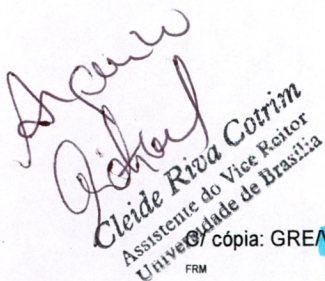 Cleide Riva Cotrim
Assistente do Vice Reitor
Universidade de Brasília
C/ cópia: GRE
FRM